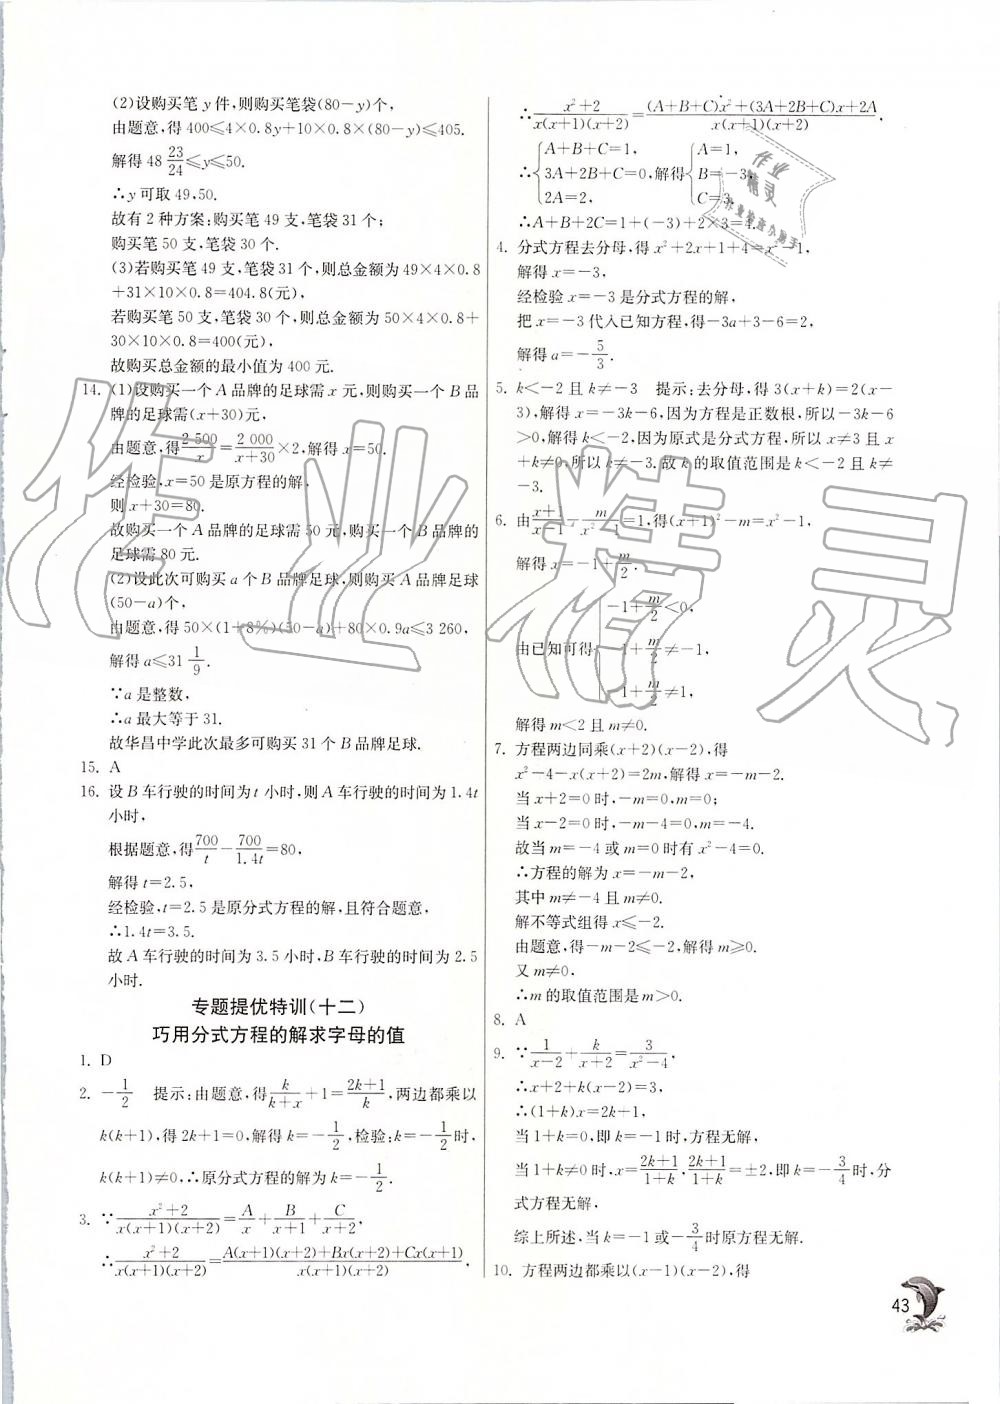 (2)设购买笔 y 件,则购买笔袋(80-y)个,
由题意,得 400≤4×0.8y+10×0.8×(80-y)≤405.
解得 48 23/24 ≤y≤50.
∴y 可取 49,50.
故有 2 种方案:购买笔 49 支,笔袋 31 个;
购买笔 50 支,笔袋 30 个.
(3)若购买笔 49 支,笔袋 31 个,则总金额为 49×4×0.8
+31×10×0.8=404.8(元),
若购买笔 50 支,笔袋 30 个,则总金额为 50×4×0.8+
30×10×0.8=400(元),
故购买总金额的最小值为 400 元.
14. (1)设购买一个 A 品牌的足球需 x 元,则购买一个 B 品
牌的足球需(x+30)元,
由题意,得 2 500/x = 2 000/(x+30) ×2,解得 x=50.
经检验,x=50 是原方程的解,
则 x+30=80.
故购买一个 A 品牌的足球需 50 元,购买一个 B 品牌的
足球需 80 元.
(2)设此次可购买 a 个 B 品牌足球,则购买 A 品牌足球
(50-a)个,
由题意,得 50×(1+8%)(50-a)+80×0.9a≤3 260,
解得 a≤31 1/9.
∵a 是整数,
∴a 最大等于 31.
故华昌中学此次最多可购买 31 个 B 品牌足球.
15. A
16. 设 B 车行驶的时间为 t 小时,则 A 车行驶的时间为 1.4t
小时,
根据题意,得 700/t - 700/1.4t =80,
解得 t=2.5,
经检验,t=2.5 是原分式方程的解,且符合题意,
∴1.4t=3.5.
故 A 车行驶的时间为 3.5 小时,B 车行驶的时间为 2.5
小时.
专题提优特训(十二)
巧用分式方程的解求字母的值
1. D
2. -1/2 提示:由题意,得 k/(k+x) +1= (2k+1)/k ,两边都乘以
k(k+1),得 2k+1=0,解得 k=-1/2,检验:k=-1/2 时,
k(k+1)≠0,∴原分式方程的解为 k=-1/2.
3. ∵ (x²+2)/(x(x+1)(x+2)) = A/x + B/(x+1) + C/(x+2),
∴ (x²+2)/(x(x+1)(x+2)) = (A(x+1)(x+2)+Bx(x+2)+Cx(x+1))/(x(x+1)(x+2)).
∴ (x²+2)/(x(x+1)(x+2)) = ((A+B+C)x²+(3A+2B+C)x+2A)/(x(x+1)(x+2)),
A+B+C=1, A=1,
∴ 3A+2B+C=0,解得 B=-3,
2A=2, C=3,
∴A+B+2C=1+(-3)+2×3=4.
4. 分式方程去分母,得 x²+2x+1+4=x²-1,
解得 x=-3,
经检验 x=-3 是分式方程的解,
把 x=-3 代入已知方程,得-3a+3-6=2,
解得 a=-5/3.
5. k<-2 且 k≠-3 提示:去分母,得 3(x+k)=2(x-
3),解得 x=-3k-6,因为方程是正数根,所以-3k-6
>0,解得 k<-2,因为原式是分式方程,所以 x≠3 且 x
+k≠0,所以 k≠-3.故 k 的取值范围是 k<-2 且 k≠
-3.
6. 由 (x+1)/(x-1) - m/(x²-1) =1,得(x+1)²-m=x²-1,
解得 x=-1+m/2.
-1+m/2<0,
由已知可得 -1+m/2≠-1,
-1+m/2≠1,
解得 m<2 且 m≠0.
7. 方程两边同乘(x+2)(x-2),得
x²-4-x(x+2)=2m,解得 x=-m-2.
当 x+2=0 时,-m=0,m=0;
当 x-2=0 时,-m-4=0,m=-4.
故当 m=-4 或 m=0 时有 x²-4=0.
∴方程的解为 x=-m-2,
其中 m≠-4 且 m≠0.
解不等式组得 x≤-2.
由题意,得-m-2≤-2,解得 m≥0.
又 m≠0,
∴m 的取值范围是 m>0.
8. A
9. ∵ 1/(x-2) + k/(x+2) = 3/(x²-4),
∴x+2+k(x-2)=3,
∴(1+k)x=2k+1,
当 1+k=0,即 k=-1 时,方程无解,
当 1+k≠0 时,x= (2k+1)/(1+k), (2k+1)/(1+k) =±2,即 k=-3/4 时,分
式方程无解,
综上所述,当 k=-1 或-3/4 时原方程无解.
10. 方程两边都乘以(x-1)(x-2),得
43
作业精灵
作业
精灵